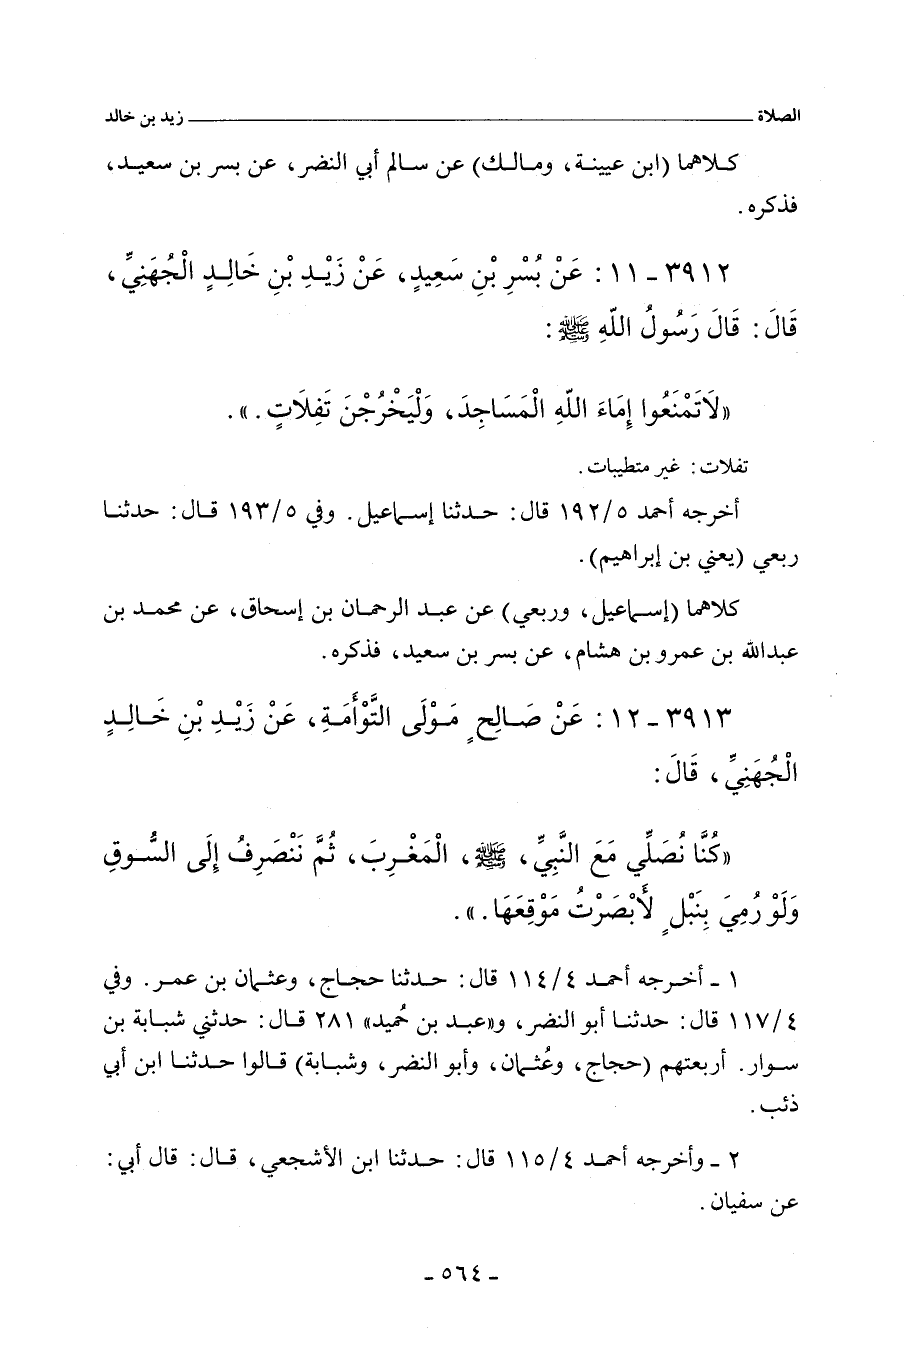 الصلاة ــــــــــــــــــــ زيد بن خالد
كلاهما (ابن عيينة، ومالك) عن سالم أبي النضر، عن بسر بن سعيد،
فذكره.
٣٩١٢ - ١١ : عَنْ بُسْرِ بْنِ سَعِيدٍ، عَنْ زَيْدِ بْنِ خَالِدٍ الْجُهَنِيِّ،
قَالَ: قَالَ رَسُولُ اللّهِ ﷺ:
«لَاتَمْنَعُوا إِمَاءَ اللّهِ الْمَسَاجِدَ، وَلْيَخْرُجْنَ تَفِلَاتٍ.».
تفلات: غير متطيبات.
أخرجه أحمد ١٩٢/٥ قال: حدثنا إسماعيل. وفي ١٩٣/٥ قال: حدثنا
ربعي (يعني بن إبراهيم).
كلاهما (إسماعيل، وربعي) عن عبد الرحمان بن إسحاق، عن محمد بن
عبدالله بن عمرو بن هشام، عن بسر بن سعيد، فذكره.
٣٩١٣ - ١٢ : عَنْ صَالِحٍ مَوْلَى التَّوْأَمَةِ، عَنْ زَيْدِ بْنِ خَالِدٍ
الْجُهَنِيِّ، قَالَ:
«كُنَّا نُصَلِّي مَعَ النَّبِيِّ، ﷺ، الْمَغْرِبَ، ثُمَّ نَنْصَرِفُ إِلَى السُّوقِ
وَلَوْ رُمِيَ بِنَبْلٍ لَأَبْصَرْتُ مَوْقِعَهَا.».
١ - أخرجه أحمد ١١٤/٤ قال: حدثنا حجاج، وعثمان بن عمر. وفي
١١٧/٤ قال: حدثنا أبو النضر، و«عبد بن حُميد» ٢٨١ قال: حدثني شبابة بن
سوار. أربعتهم (حجاج، وعُثمان، وأبو النضر، وشبابة) قالوا حدثنا ابن أبي
ذئب.
٢ - وأخرجه أحمد ١١٥/٤ قال: حدثنا ابن الأشجعي، قال: قال أبي:
عن سفيان.
- ٥٦٤ -